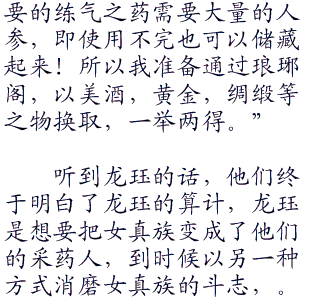 要的练气之药需要大量的人
参，即使用不完也可以储藏
起来！所以我准备通过琅琊
阁，以美酒，黄金，绸缎等
之物换取，一举两得。”
听到龙珏的话，他们终
于明白了龙珏的算计，龙珏
是想要把女真族变成了他们
的采药人，到时候以另一种
方式消磨女真族的斗志，。